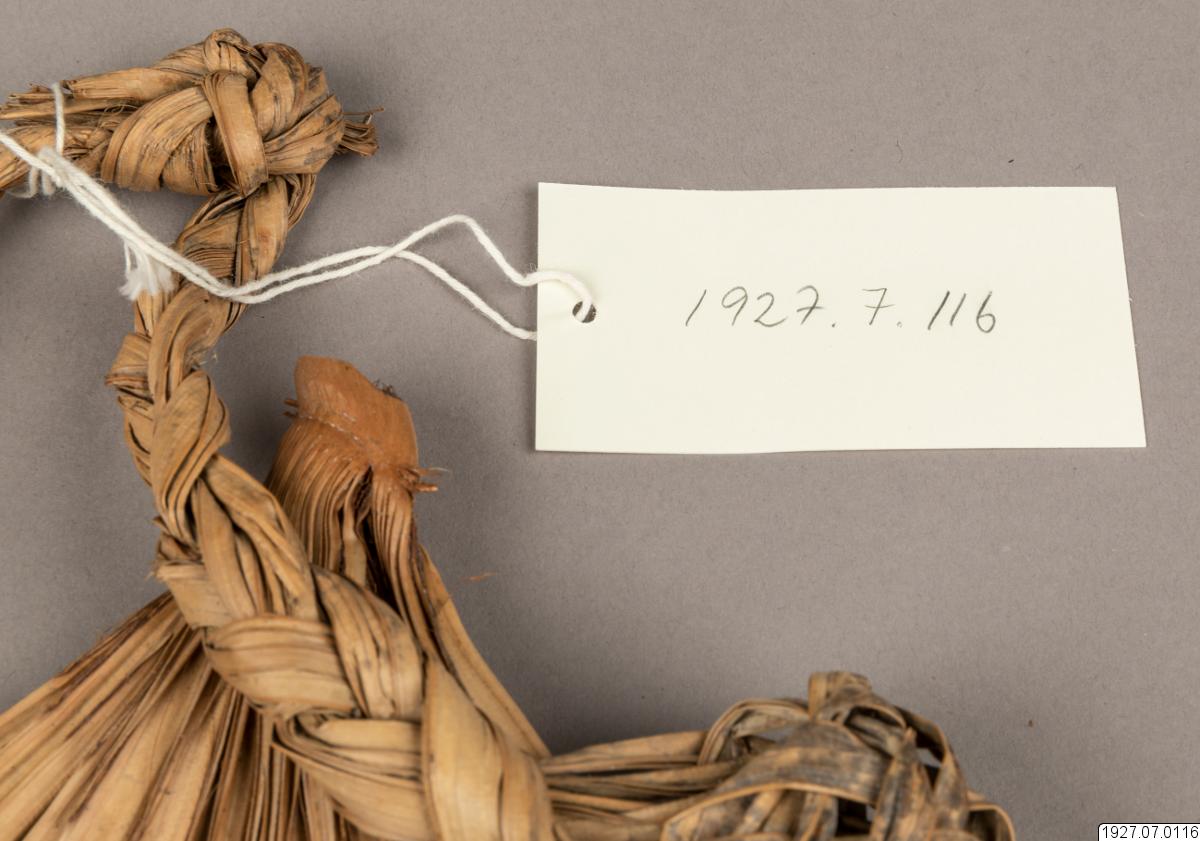 1927.7.116
1927.07.0116